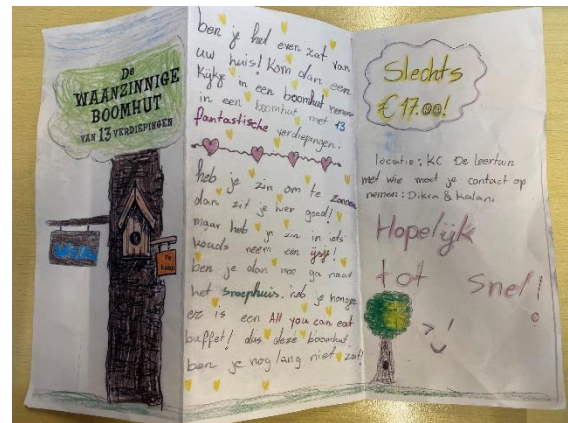 De
WAANZINNIGE
BOOMHUT
VAN 13 VERDIEPINGEN
Te
koop
ben je het even zat van
uw huis! Kom dan een
kijkje in een boomhut nemen
in een boomhut met 13
fantastische verdiepingen.
heb je zin om te zonnen
dan zit je hier goed!
maar heb je zin in iets
kouds neem een ijsje!
ben je dan moe ga naar
het snoephuis. heb je honger
er is een All you can eat
buffet! dus deze boomhut
ben je nog lang niet zat!
Slechts
€17.00!
locatie: KC De Leertuin
met wie moet je contact op
nemen: Dikra & Kalani
Hopelijk
tot Snel!